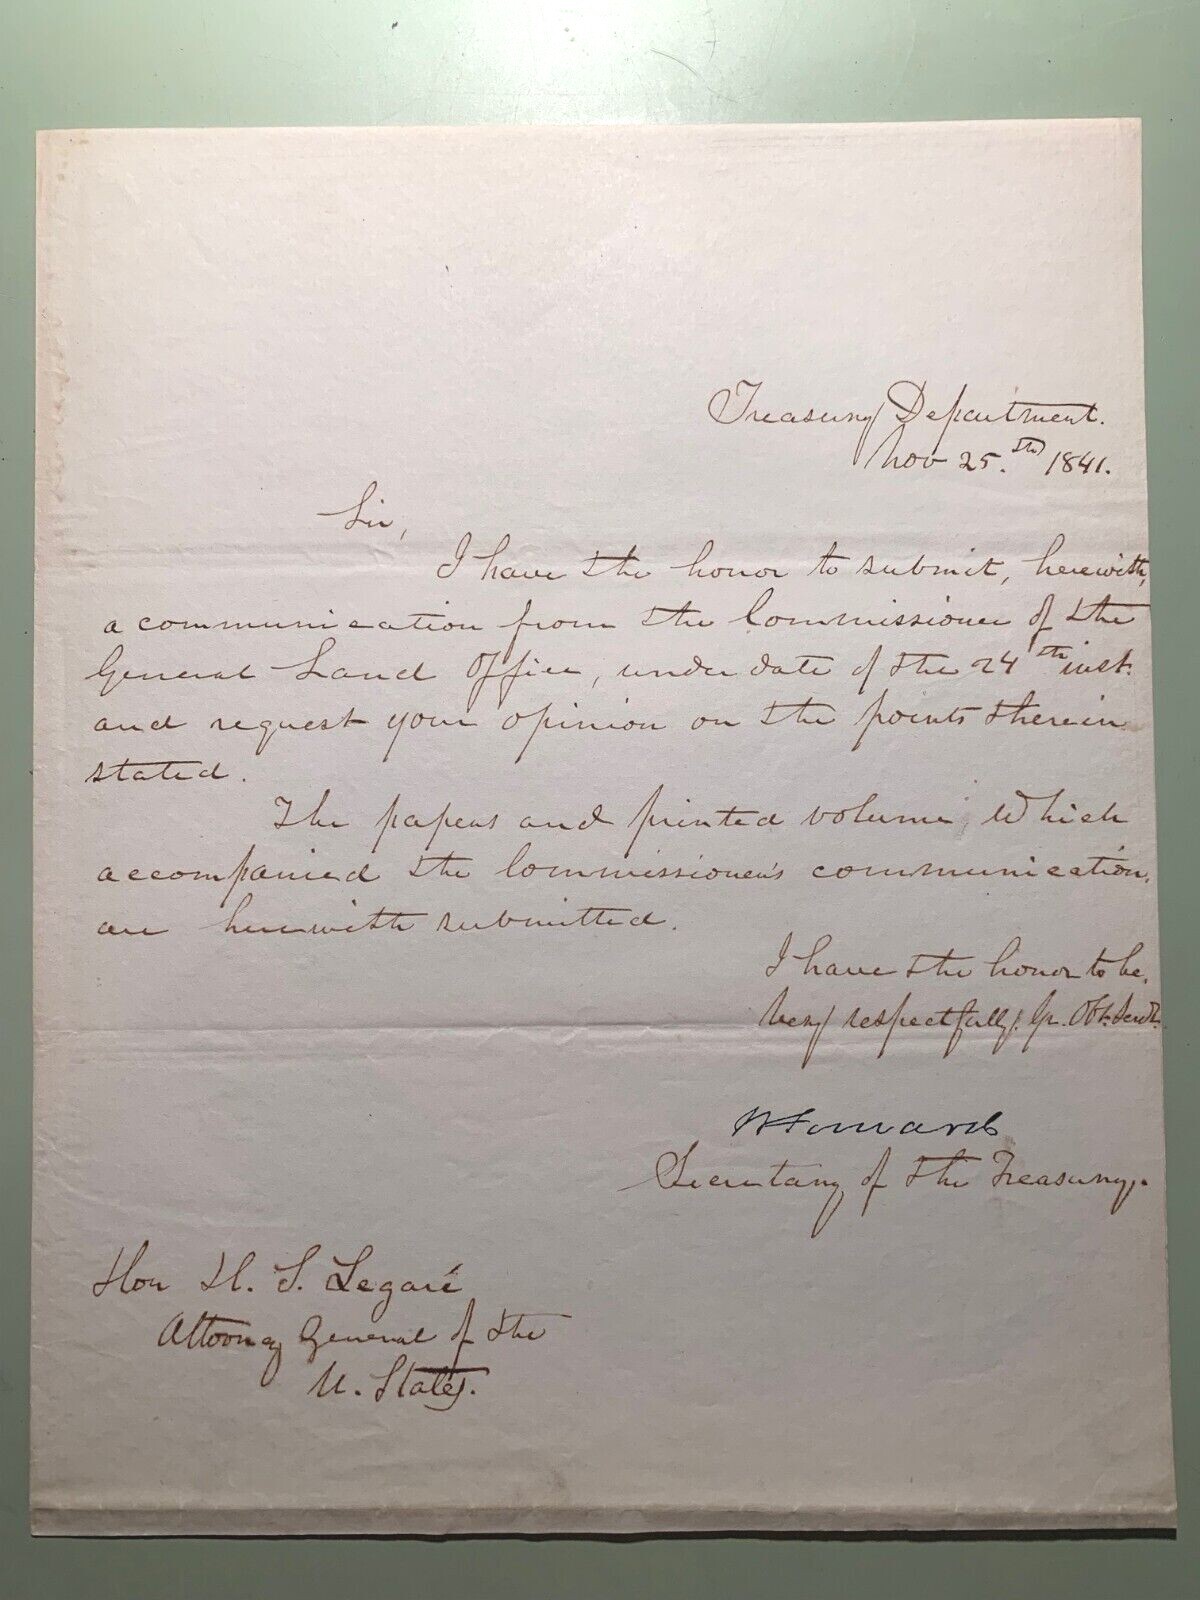 Treasury Department.
Nov 25.th 1841.
Sir,
I have the honor to submit, herewith,
a communication from the Commissioner of the
General Land Office, under date of the 24th inst.
and request your opinion on the points therein
stated.
The papers and printed volume, which
accompanied the Commissioner's communication,
are herewith submitted.
I have the honor to be,
Very respectfully, Yr. Obt. Servt.
W Forward
Secretary of the Treasury.
Hon H. S. Legaré
Attorney General of the
U. States.